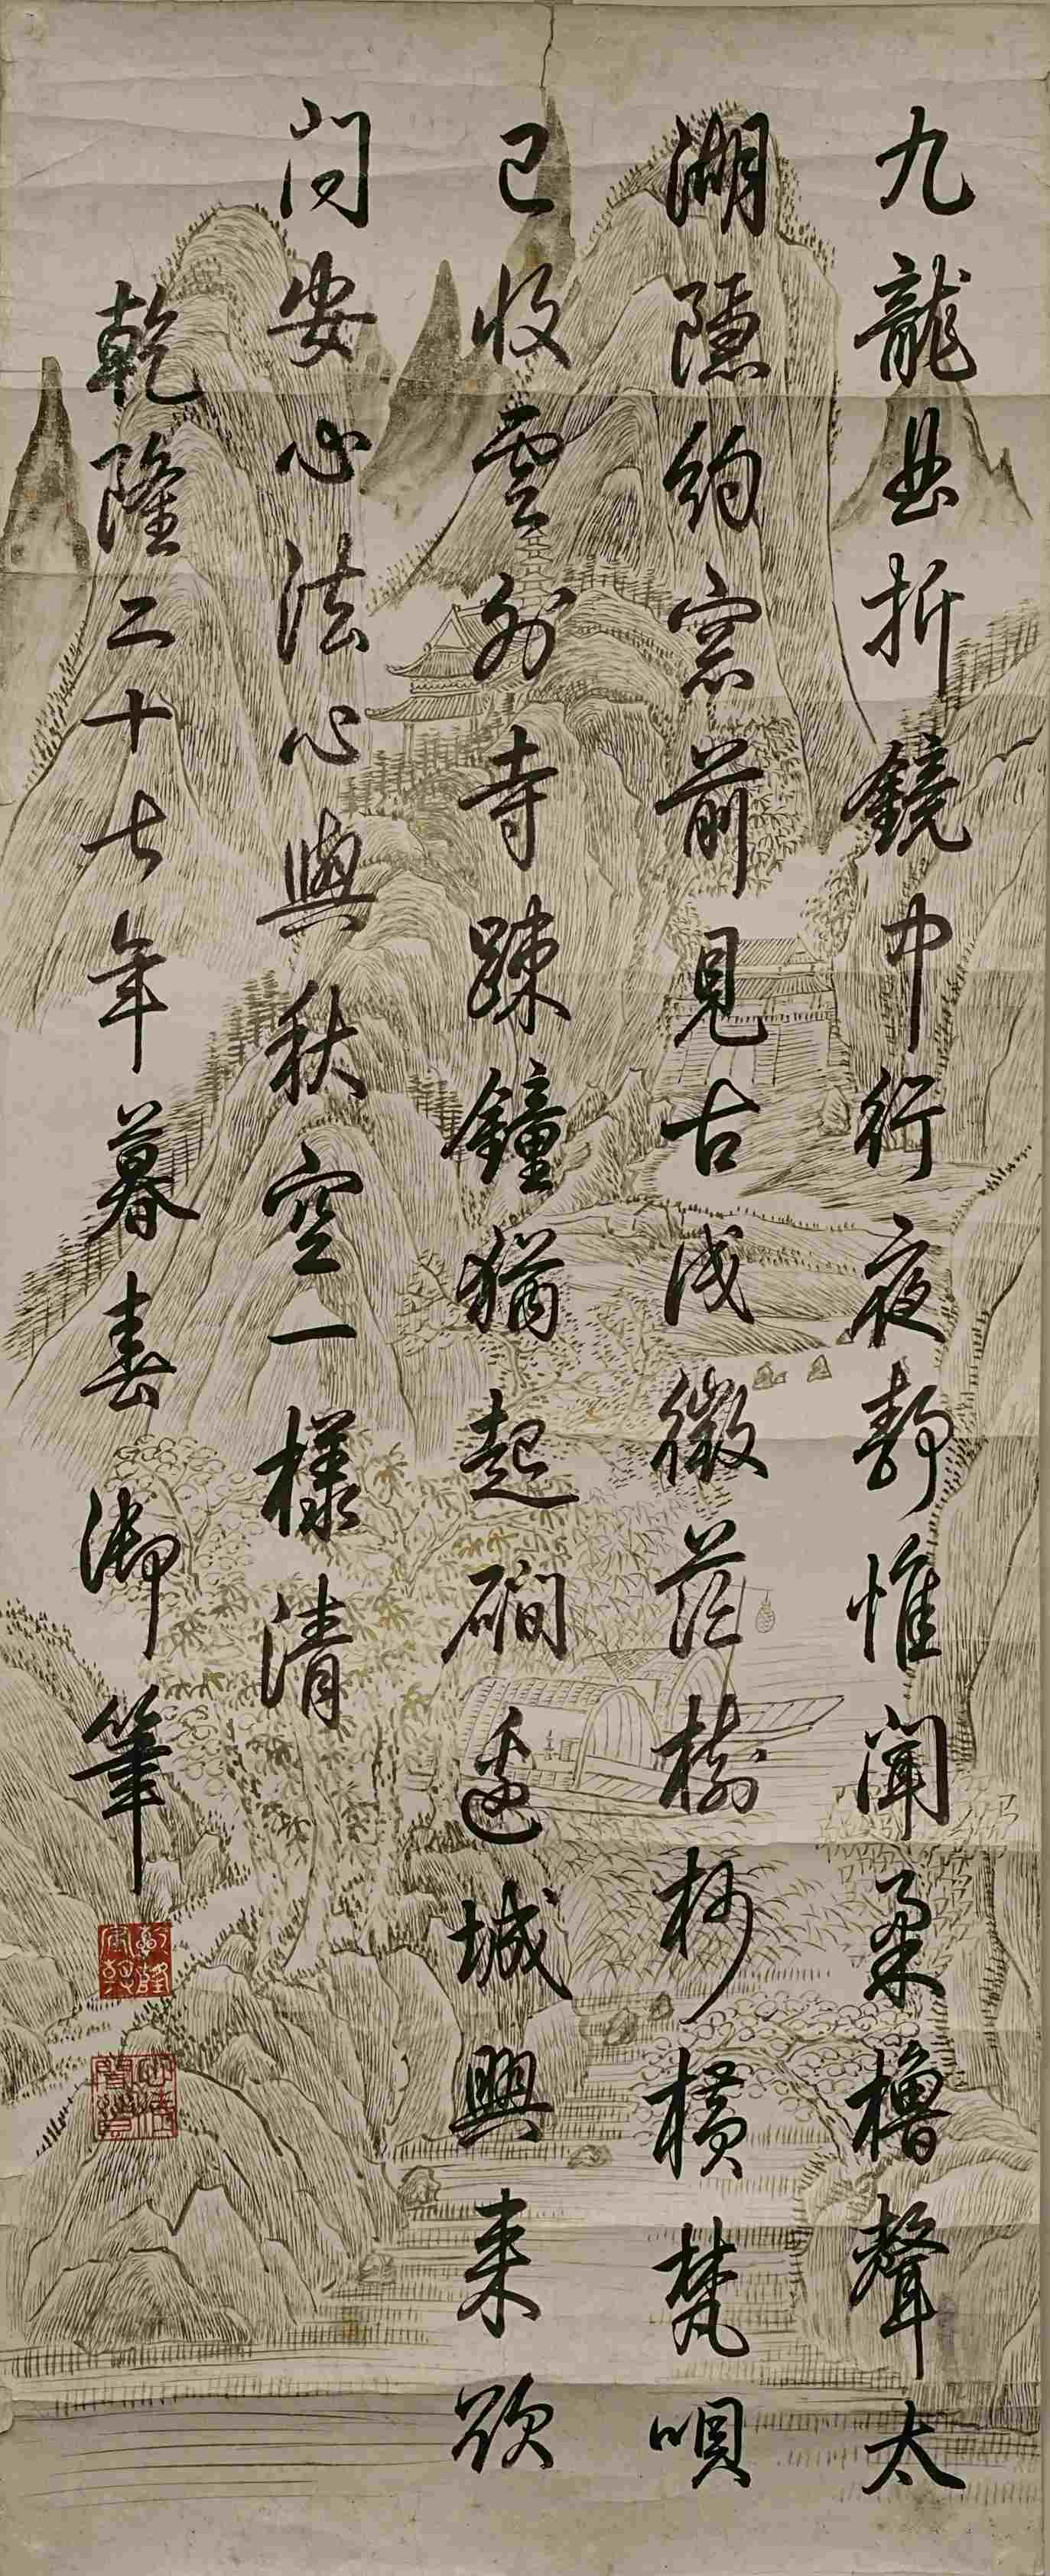 九龍曲折鏡中行夜靜惟聞柔櫓聲太
湖隱約窓前見古浅微茫樹杪橫梵唄
已收雲外寺踈鐘猶起磵邊城興来欲
问安心法心與秋空一樣清
乾隆二十七年暮春御筆
乾隆宸翰